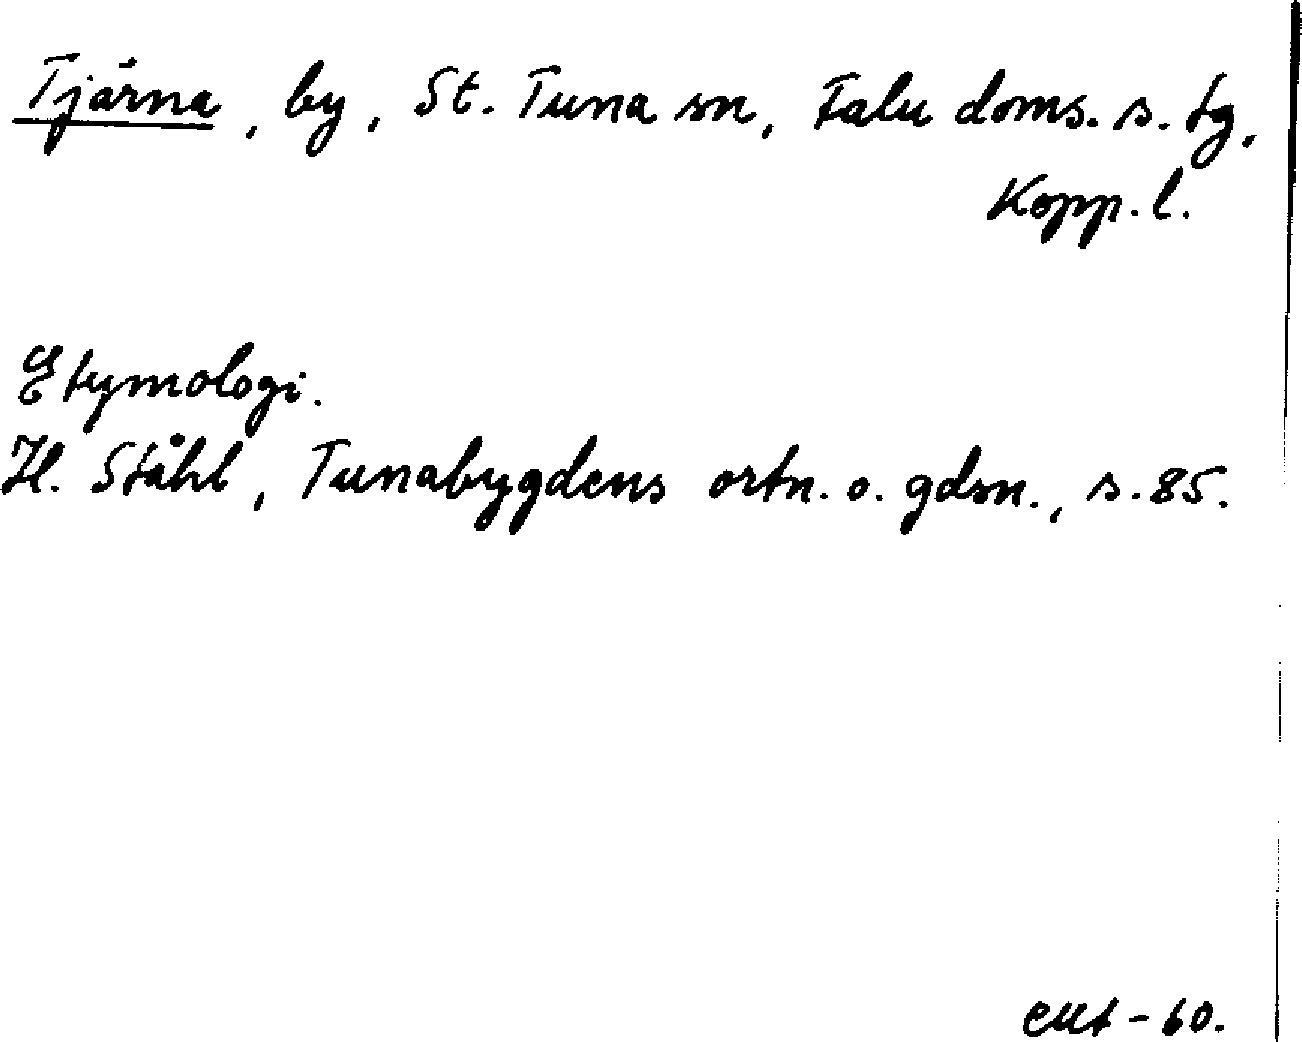 Tjärna, by, St. Tuna sn, Falu doms. s. tg,
Kopp. l.
Etymologi.
H. Ståhl, Tunabygdens ortn. o. gdsn., s. 85.
-60.